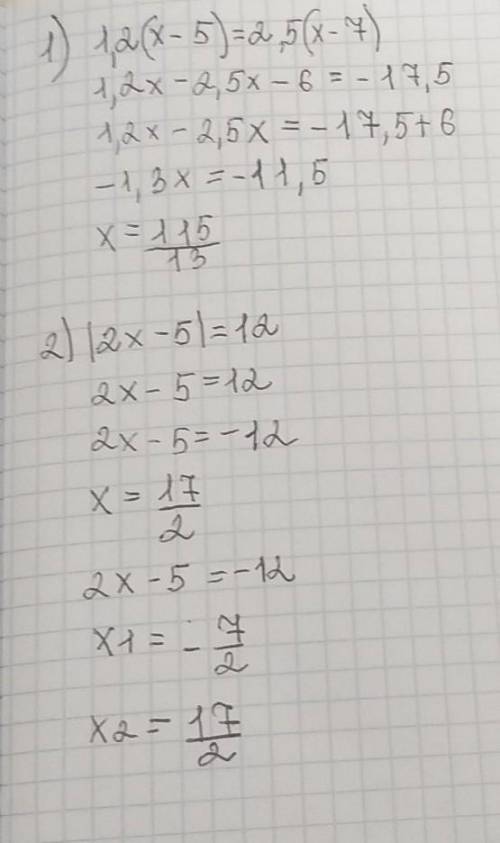 1) 1,2(x-5)=2,5(x-7)
1,2x-2,5x-6=-17,5
1,2x-2,5x=-17,5+6
-1,3x=-11,5
x=115/13
2) |2x-5|=12
2x-5=12
2x-5=-12
x=17/2
2x-5=-12
x1=-7/2
x2=17/2